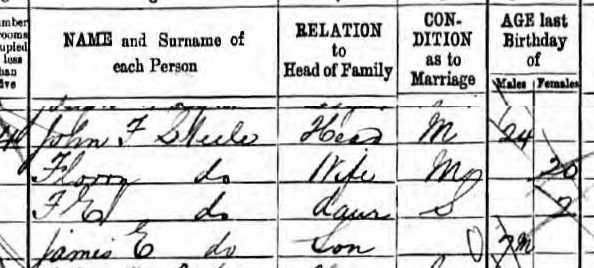 umber
rooms
upied
less
han
ive
NAME and Surname of
each Person
RELATION
to
Head of Family
CON-
DITION
as to
Marriage
AGE last
Birthday
of
Males Females
John F Steele Head M 24
Florry do Wife M 20
F E do daur S 2
James E do Son 7m